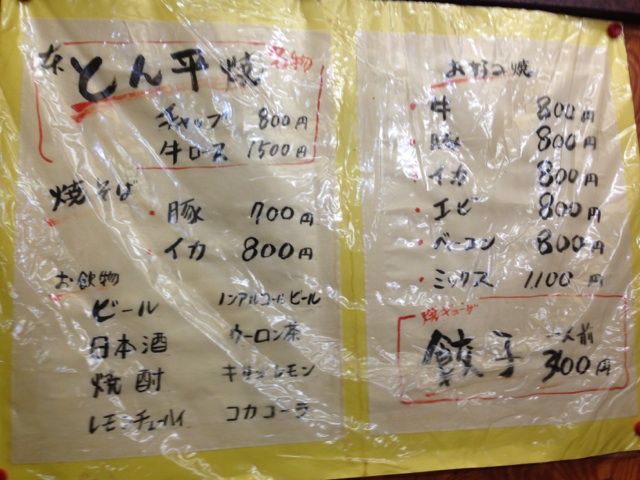 とん平焼 名物
チャップ 800円
牛ロース 1500円
焼そば
・豚 700円
・イカ 800円
お飲物
ビール ノンアルコールビール
日本酒 ウーロン茶
焼酎 キリンレモン
レモンチューハイ コカコーラ
お好み焼
・牛 800円
・豚 800円
・イカ 800円
・エビ 800円
・ベーコン 800円
・ミックス 1,100円
焼ギョーザ
餃子 一人前 300円